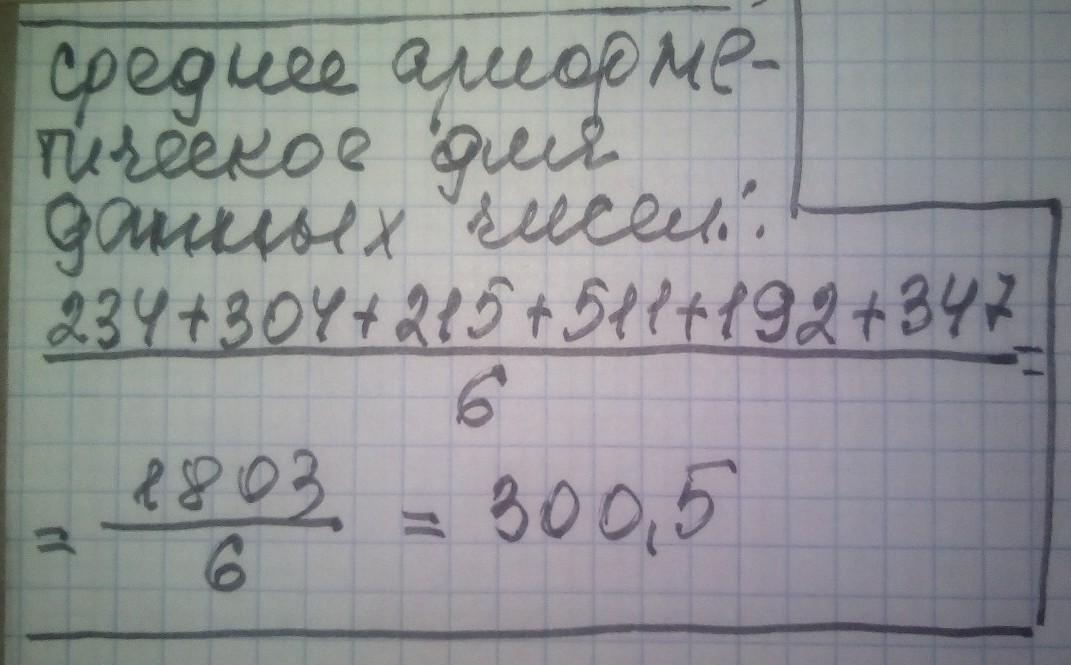 среднее арифме-
тическое для
данных чисел:
234+304+215+511+192+347
=
6
= 1803
6
= 300,5